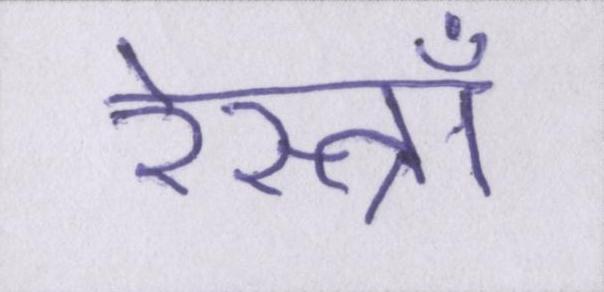 रेस्त्राँ